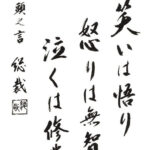 笑いは悟り
怒りは無智
泣くは修
頭之言 総裁